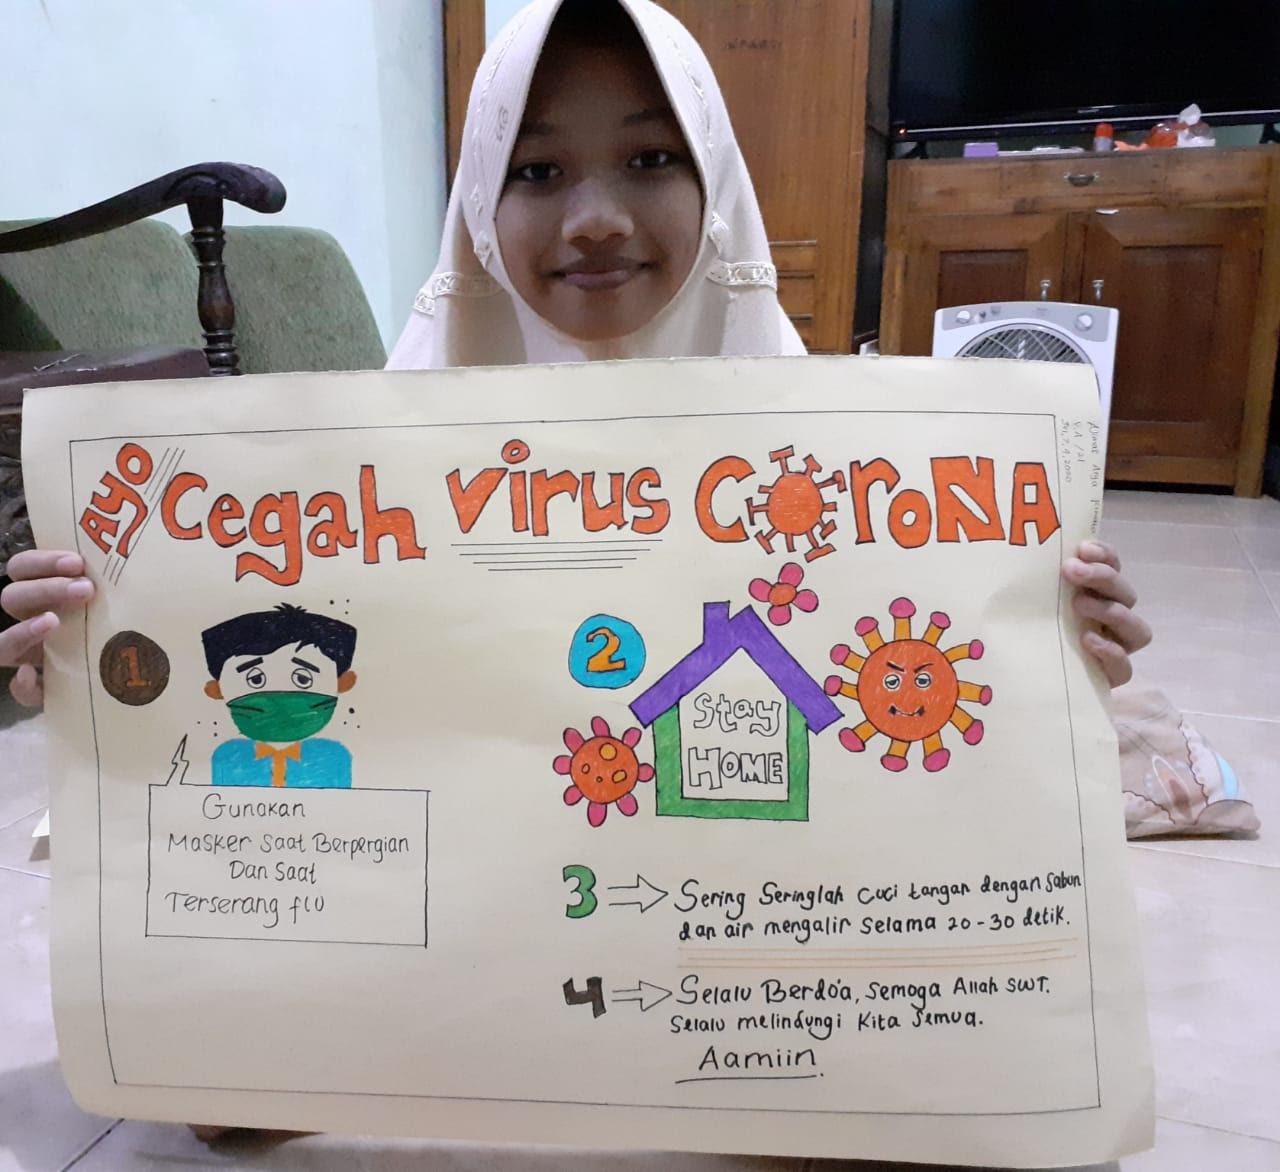 AYO Cegah Virus CoroNA
1
Gunakan
Masker Saat Berpergian
Dan Saat
Terserang flu
2
Stay
HOME
3 Sering Seringlah Cuci tangan dengan sabun
dan air mengalir selama 20-30 detik.
4 Selalu Berdo'a, Semoga Allah SWT.
Selalu melindungi Kita Semua.
Aamiin.